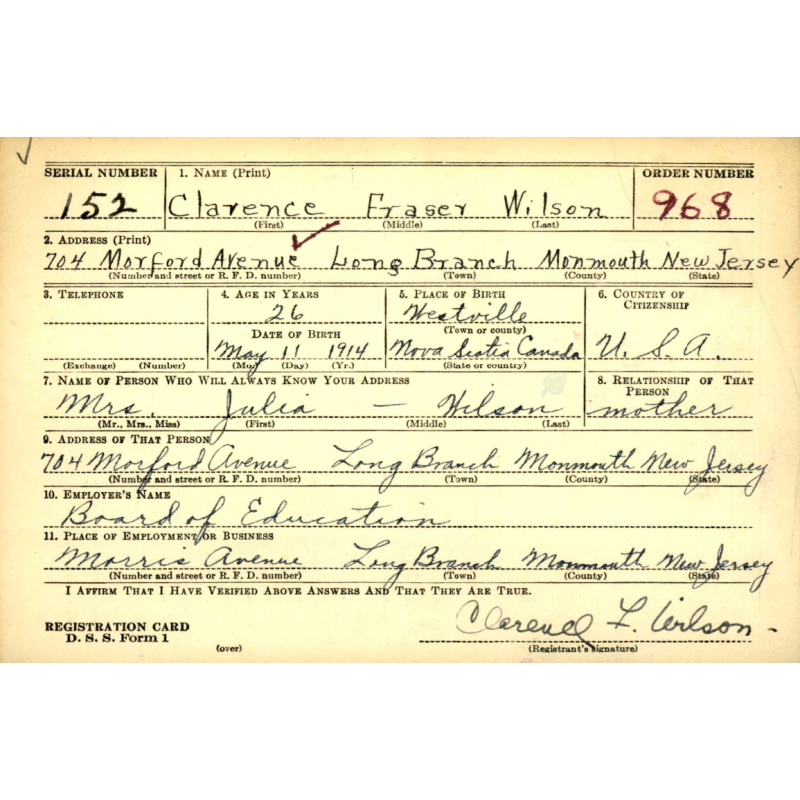 SERIAL NUMBER 1. NAME (Print) ORDER NUMBER
152 Clarence Fraser Wilson 968
(First) (Middle) (Last)
2. ADDRESS (Print)
704 Morford Avenue Long Branch Monmouth New Jersey
(Number and street or R. F. D. number) (Town) (County) (State)
3. TELEPHONE 4. AGE IN YEARS 5. PLACE OF BIRTH 6. COUNTRY OF CITIZENSHIP
26 Westville
(Town or county)
DATE OF BIRTH
May 11 1914 Nova Scotia Canada U. S. A.
(Exchange) (Number) (Mo.) (Day) (Yr.) (State or country)
7. NAME OF PERSON WHO WILL ALWAYS KNOW YOUR ADDRESS 8. RELATIONSHIP OF THAT PERSON
Mrs. Julia — Wilson mother
(Mr., Mrs., Miss) (First) (Middle) (Last)
9. ADDRESS OF THAT PERSON
704 Morford Avenue Long Branch Monmouth New Jersey
(Number and street or R. F. D. number) (Town) (County) (State)
10. EMPLOYER'S NAME
Board of Education
11. PLACE OF EMPLOYMENT OR BUSINESS
Morris Avenue Long Branch Monmouth New Jersey
(Number and street or R. F. D. number) (Town) (County) (State)
I AFFIRM THAT I HAVE VERIFIED ABOVE ANSWERS AND THAT THEY ARE TRUE.
REGISTRATION CARD Clarence F. Wilson
D. S. S. Form 1 (over) (Registrant's signature)